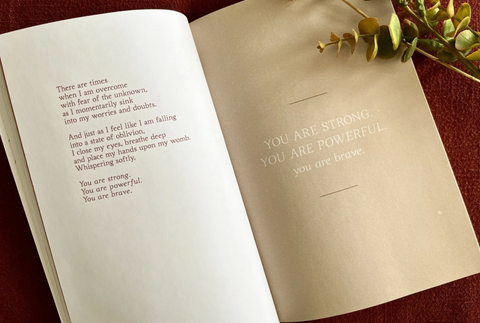 There are times
when I am overcome
with fear of the unknown,
as I momentarily sink
into my worries and doubts.
And just as I feel like I am falling
into a state of oblivion,
I close my eyes, breathe deep
and place my hands upon my womb.
Whispering softly,
You are strong.
You are powerful.
You are brave.
YOU ARE STRONG.
YOU ARE POWERFUL.
you are brave.